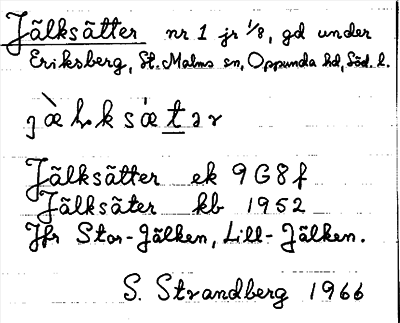 Jälksätter nr 1 jr 1/8, gd under
Eriksberg, St. Malms sn, Oppunda hd, Söd. l.
Jälksätter ek 9G8f
Jälksäter kb 1952
Jfr Stor-Jälken, Lill-Jälken.
S. Strandberg 1966